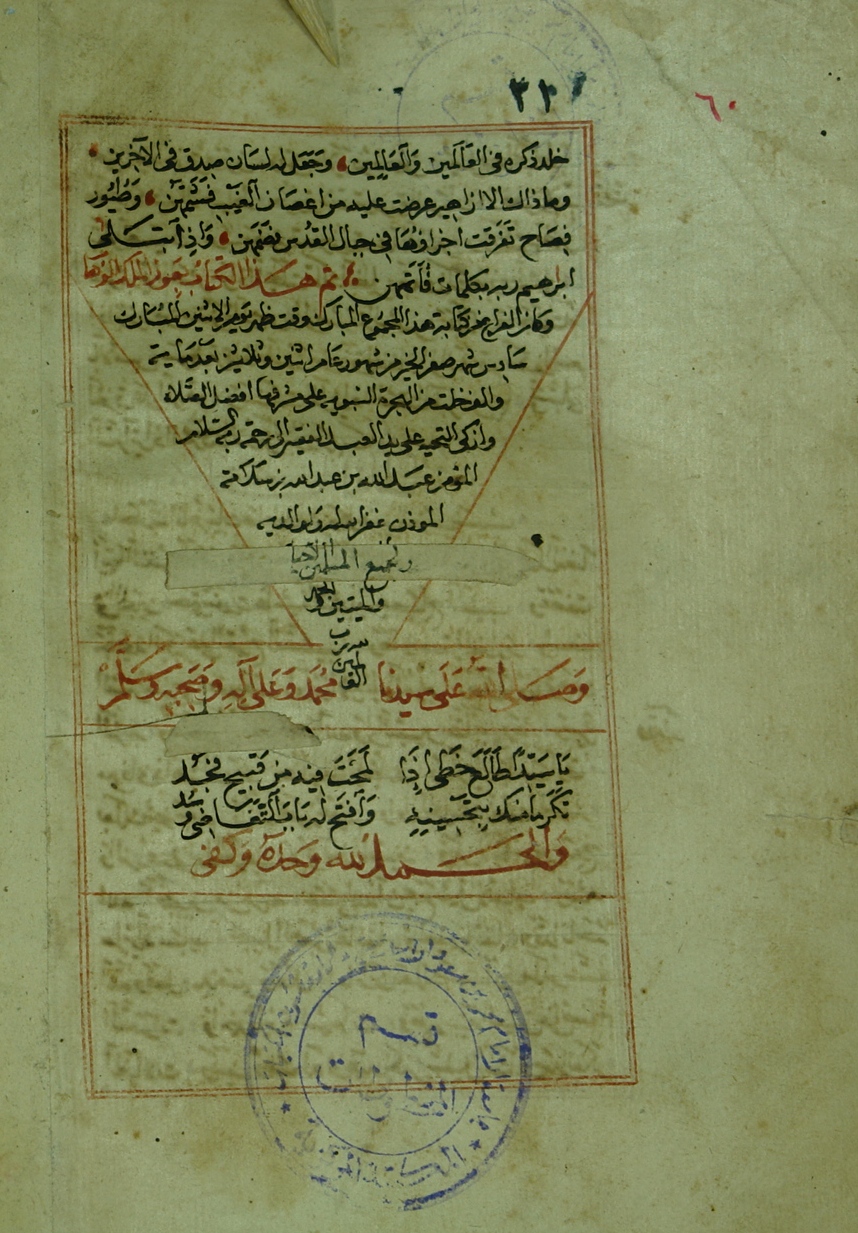 ٣٢
٦٠
خلد ذكره في العالَمين وَالعَالِمين وجَعَل له لسَان صِدق في الآخرين
وماذاك الا ازاهير عرضت عليه من اغصان الغيب فشمهن وطُيُور
فصاح تفرقت اجزاوها في جبال القدس فضمهن وَاذ ابتَلى
ابراهيم ربه بكلمات فاتمهن تم هذا الكتاب بعون الملك الوهاب
وكان الفراغ من كتابة هذا المجموع المبارك وقت ظهر يوم الاثنين المبارك
سادس شهر صفر الخير من شهور عام اثنين وثلاثين بعد ماية
والف خلت من الهجرة النبويه على مشرفها افضل الصّلاه
وازكى التحيه على يد العبد الفقير الى رحمة ربه السّلام
المؤمن عبد الله بن عبد الله بن سلامة
الموذن غفر الله له ولوالديه
ولجميع المسلمين الاحيا
والميتين والحمد
لله رب
العالمين
وَصَلى الله عَلَى سيدنا محمدٍ وَعَلى آلهِ وصَحبهِ وسَلم
يَا سَيّدًا طَالَع خَطّى اذَا لمحْتَ فيه من قبيح فجُد
تكرما منك بتحسينهِ وَافتح له بَابَ التغَاضِى وسُد
وَالحمد لله وحدَهُ وكفى
قسم
المخطوطات